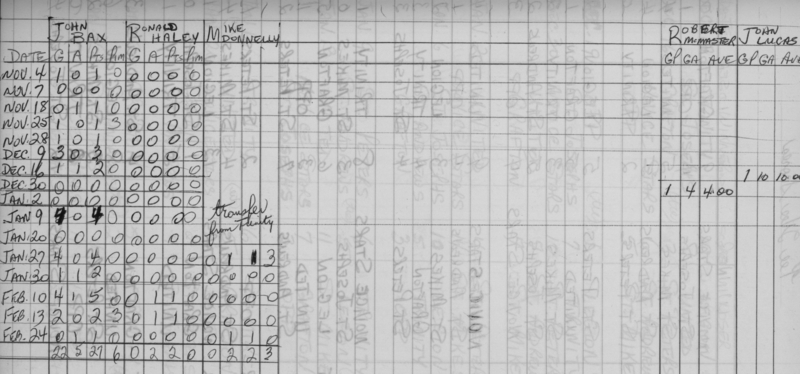 JOHN BAX RONALD HALEY MIKE DONNELLY ROBERT JOHN LUCAS
DATE G A Pts Pim G A Pts Pim GP GA AVE GP GA AVE
NOV. 4 1 0 1 0 0 0 0 0
NOV. 7 0 0 0 0 0 0 0 0
NOV. 18 0 1 1 0 0 0 0 0
NOV. 25 1 0 1 3 0 0 0 0
NOV. 28 1 0 1 0 0 0 0 0
DEC. 9 3 0 3 0 0 0 0 0
DEC. 16 1 1 2 0 0 0 0 0 1 10 10.00
DEC. 30 0 0 0 0 0 0 0 0 1 4 4.00
JAN. 2 0 0 0 0 0 0 0 0
JAN 9 4 0 4 0 0 0 0 0 transfer
JAN. 20 0 0 0 0 0 0 0 0 from
JAN. 27 4 0 4 0 0 0 0 0 0 1 1 3
JAN. 30 1 1 2 0 0 0 0 0 0 0 0 0
FEB. 10 4 1 5 0 0 1 1 0 0 0 0 0
FEB. 13 2 0 2 3 0 1 1 0 0 0 0 0
FEB. 24 0 1 1 0 0 0 0 0 0 1 1 0
22 5 27 6 0 2 2 0 0 2 2 3